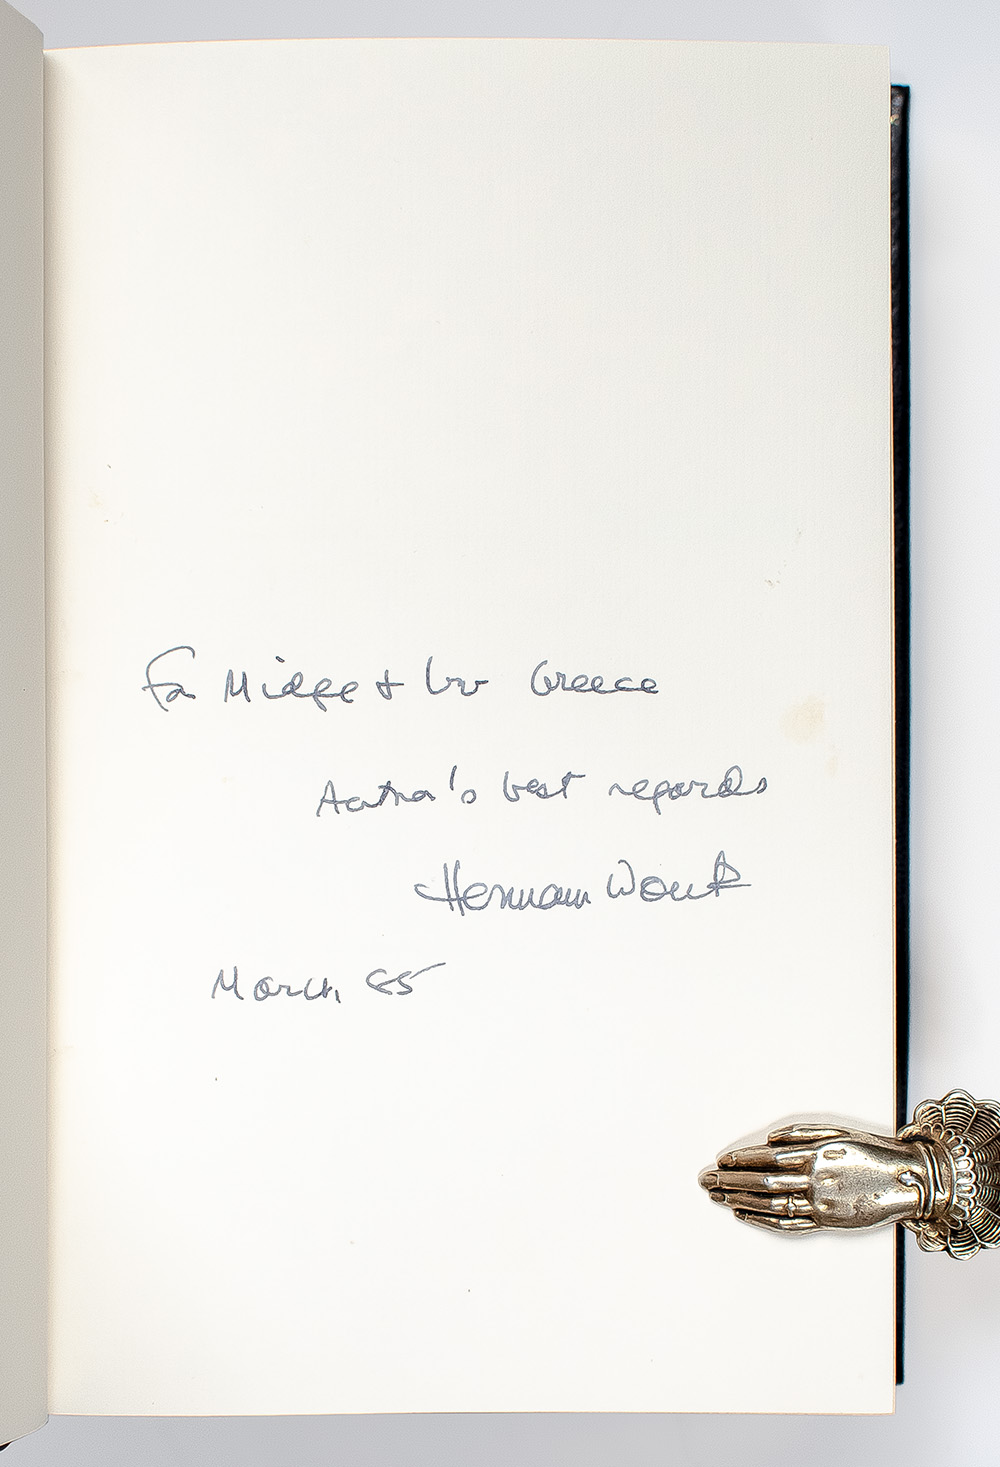 For Midge & Irv Greece
Author's best regards
Herman Wouk
March 85